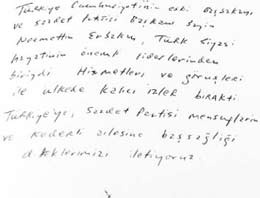 Türkiye Cumhuriyetinin eski Başbakanı
ve Saadet Partisi Başkanı Sayın
Necmettin Erbakan, Türk Siyasi
hayatının önemli liderlerinden
biriydi Hizmetleri ve görüşleri
ile ülkede kalıcı izler bıraktı
Türkiye'ye, Saadet Partisi mensuplarına
ve kederli ailesine başsağlığı
dileklerimizi iletiyoruz